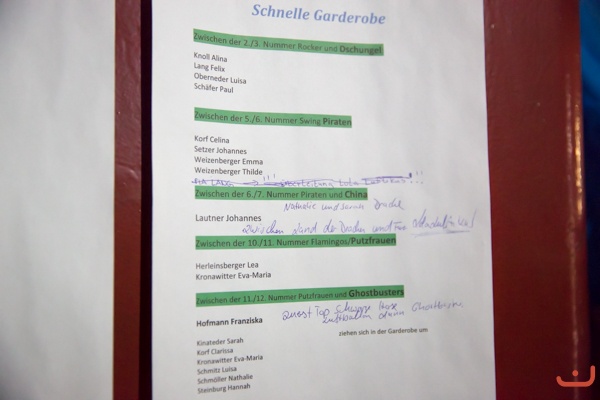 Schnelle Garderobe
Zwischen der 2./3. Nummer Rocker und Dschungel
Knoll Alina
Lang Felix
Oberneder Luisa
Schäfer Paul
Zwischen der 5./6. Nummer Swing Piraten
Korf Celina
Setzer Johannes
Weizenberger Emma
Weizenberger Thilde
Zwischen der 6./7. Nummer Piraten und China
Nathalie und Sarah Drache
Lautner Johannes
zwischen Stand der Drachen und
Zwischen der 10./11. Nummer Flamingos/Putzfrauen
Herleinsberger Lea
Kronawitter Eva-Maria
Zwischen der 11./12. Nummer Putzfrauen und Ghostbusters
zuerst Top schwarze Hose
Luftballon dann Ghostbusters
Hofmann Franziska
ziehen sich in der Garderobe um
Kinateder Sarah
Korf Clarissa
Kronawitter Eva-Maria
Schmitz Luisa
Schmöller Nathalie
Steinburg Hannah